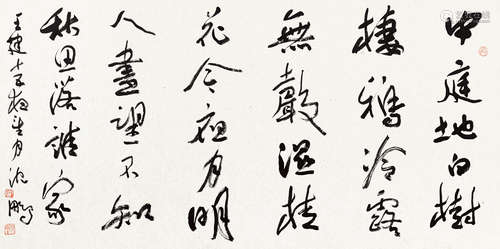 中庭地白樹
棲鴉冷露
無聲濕桂
花今夜月明
人盡望不知
秋思落誰家
王建十五夜望月沈鵬